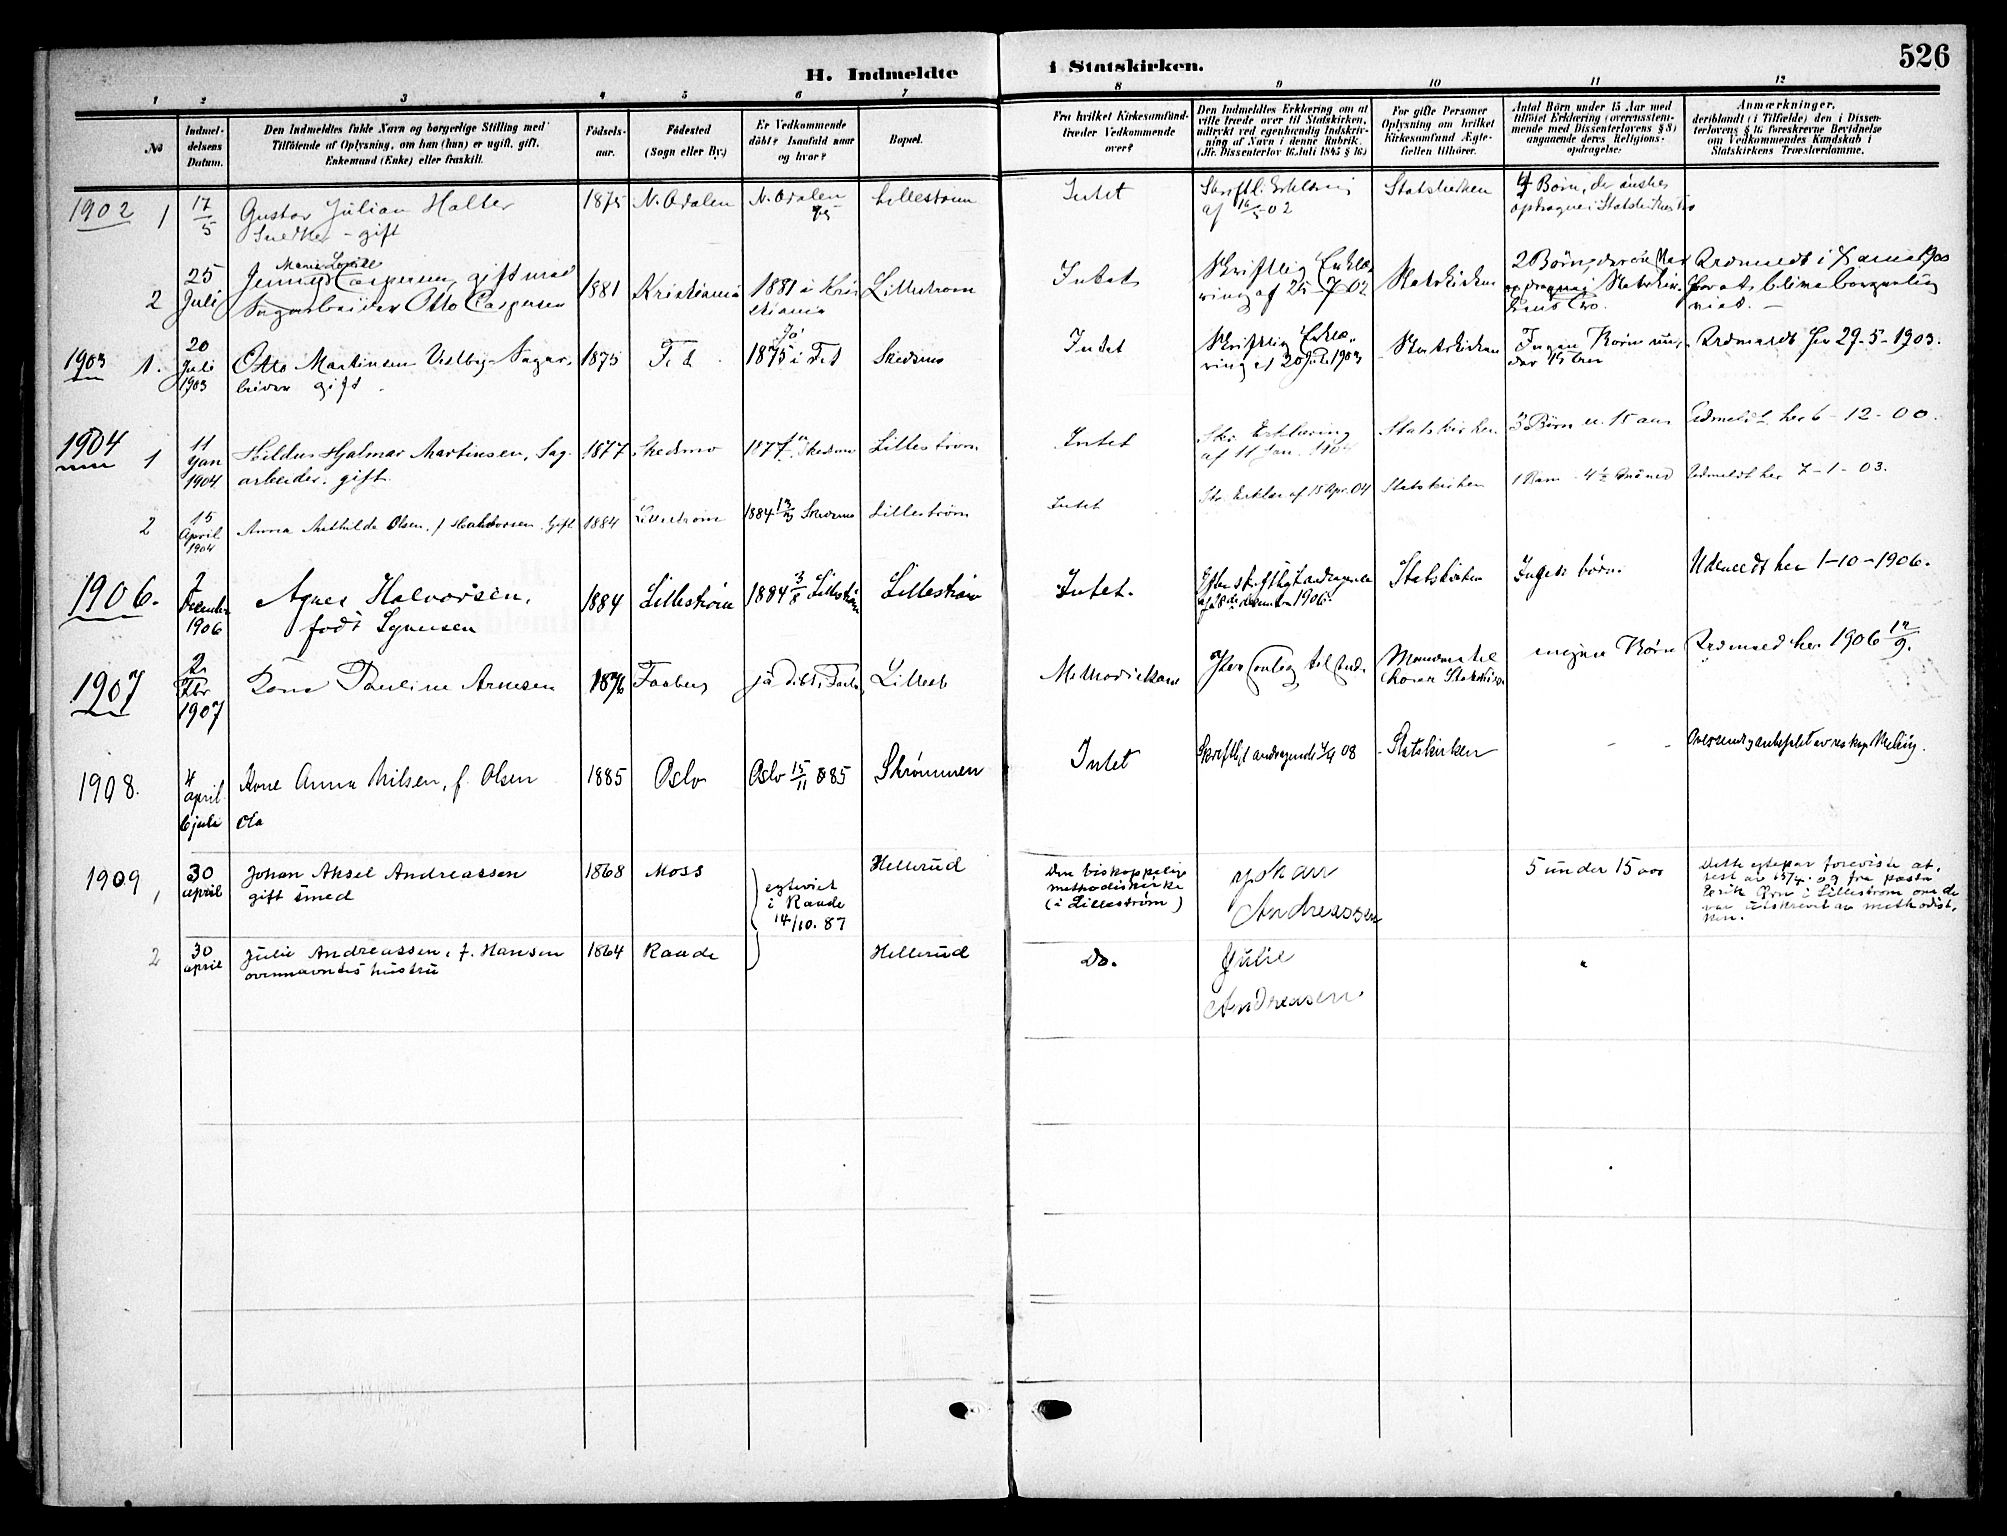 526
H. Indmeldte i Statskirken.
1 2 3 4 5 6 7 8 9 10 11 12
No
Indmel-
delsens
Datum.
Den Indmeldtes fulde Navn og borgerlige Stilling med
Tilføiende af Oplysning, om han (hun) er ugift, gift,
Enkemand (Enke) eller fraskilt.
Fødsels-
aar.
Fødested
(Sogn eller By.)
Er Vedkommende
døbt? Isaafald naar
og hvor?
Bopæl.
Fra hvilket Kirkesamfund-
træder Vedkommende
over?
Den Indmeldtes Erklæring om at
ville træde over til Statskirken,
udtrykt ved egenhændig Indskriv-
ning af Navn i denne Rubrik.
(Jfr. Dissenterlov 16 Juli 1845 § 16)
For gifte Personer
Oplysning om hvilket
Kirkesamfund Ægte-
fællen tilhører.
Antal Børn under 15 Aar med
tilføiet Erklæring (overensstem-
mende med Dissenterlovens § 8)
angaaende deres Religions-
opdragelse.
Anmærkninger,
deriblandt (i Tilfælde) den i Dissen-
terlovens § 16 foreskrevne Bevidnelse
om Vedkommendes Kundskab i
Statskirkens Troeslærdomme.
1902 1 17/5 Gustav Julian Halter 1875 N. Odalen N. Odalen 75 Lillestrøm Intet Skriftl. Erklæring Statskirken 4 Børn, de ønskes
Snedker - gift af 16/5 02 opdragne i Statskirkens Tro
2 25 Juli Jenny Marie Lovise Caspersen, gift med 1881 Kristiania 1881 i Kri- Lillestrøm Intet Skriftlig Erklæ- Statskirken 2 Børn,
Sagarbeider Otto Caspersen stiania ring af 25-7-02 opdragne i Statskir-
kens Tro.
borgerlig
viet. -
1903 1. 20 Juli 1903 Otto Martinsen Vestby - Sagar- 1875 Fet 1875 i Fet Skedsmo Intet Skriftlig Erklæ- Statskirken Ingen Børn un- Udmeldt her 29-5-1903.
beider gift. ring af 20 Juli 1903 der 15 aar
1904 1 11 Jan 1904 Hildus Hjalmar Martinsen, Sag- 1877 Skedsmo 1877 i Skedsmo Lillestrøm Intet Skr. Erklæring Statskirken 3 Børn u. 15 aar Udmeldt her 6-12-00.
arbeider, gift. af 11 Jan. 1904
2 15 April 1904 Anna Mathilde Olsen, f. Halvorsen. Gift 1884 Lillestrøm 1884 Skedsmo Lillestrøm Intet Skr. Erklær. af 15 Apr. 04 Statskirken 1 Barn - 4½ Måned Udmeldt her 7-1-03.
1906. 2 December 1906 Agnes Halvorsen, 1884 Lillestrøm 1884 3/8 Lillestrøm Lillestrøm Intet. Efter skriftligt andragende Statskirken Ingen børn. Udmeldt her 1-10-1906.
født Synnesen af 28de december 1906.
1907 2 Fbr 1907 Kone Pauline Arnesen 1876 Faaberg ja Døbt i Faaberg Lillestr Methodistkirk Manden til- ingen Børn Udmeld her 1906 12/9.
hører Statskirken
1908. 4 april 6 juli Kone Anna Nilsen, f. Olsen 1885 Oslo Oslo 15/11 885 Strømmen Intet Skriftligt andragende 4/4 08 Statskirken - -
do
1909 1 30 april Johan Aksel Andreassen 1868 Moss Hellerud Den biskoppelige Johan 5 under 15 aar Dette egtepar foreviste at-
gift smed egteviet methodistkirke Andreassen test av 15/4. 09 fra pastor
i Raade (i Lillestrøm) i Lillestrøm om de
14/10. 87 var utskrevet av methodist-
kirken.
2 30 april Julie Andreassen, f. Hansen 1864 Raade Hellerud Do. Julie "
ovennævntes hustru Andreasen.